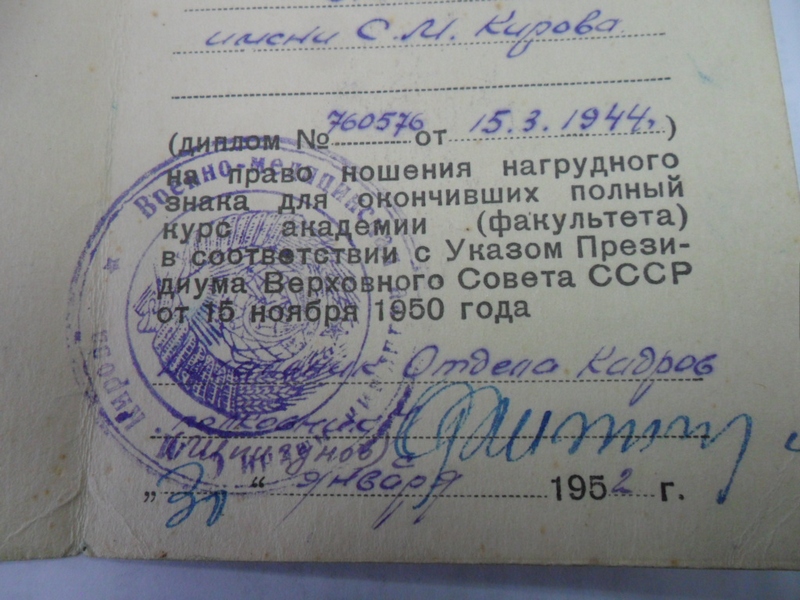 имени С.М. Кирова
(диплом № 760576 от 15.3.1944г.)
на право ношения нагрудного
знака для окончивших полный
курс академии (факультета)
в соответствии с Указом Прези-
диума Верховного Совета СССР
от 15 ноября 1950 года
Начальник Отдела Кадров
полковник
„31“ января 1952 г.
Военно-медицинская
Кирова